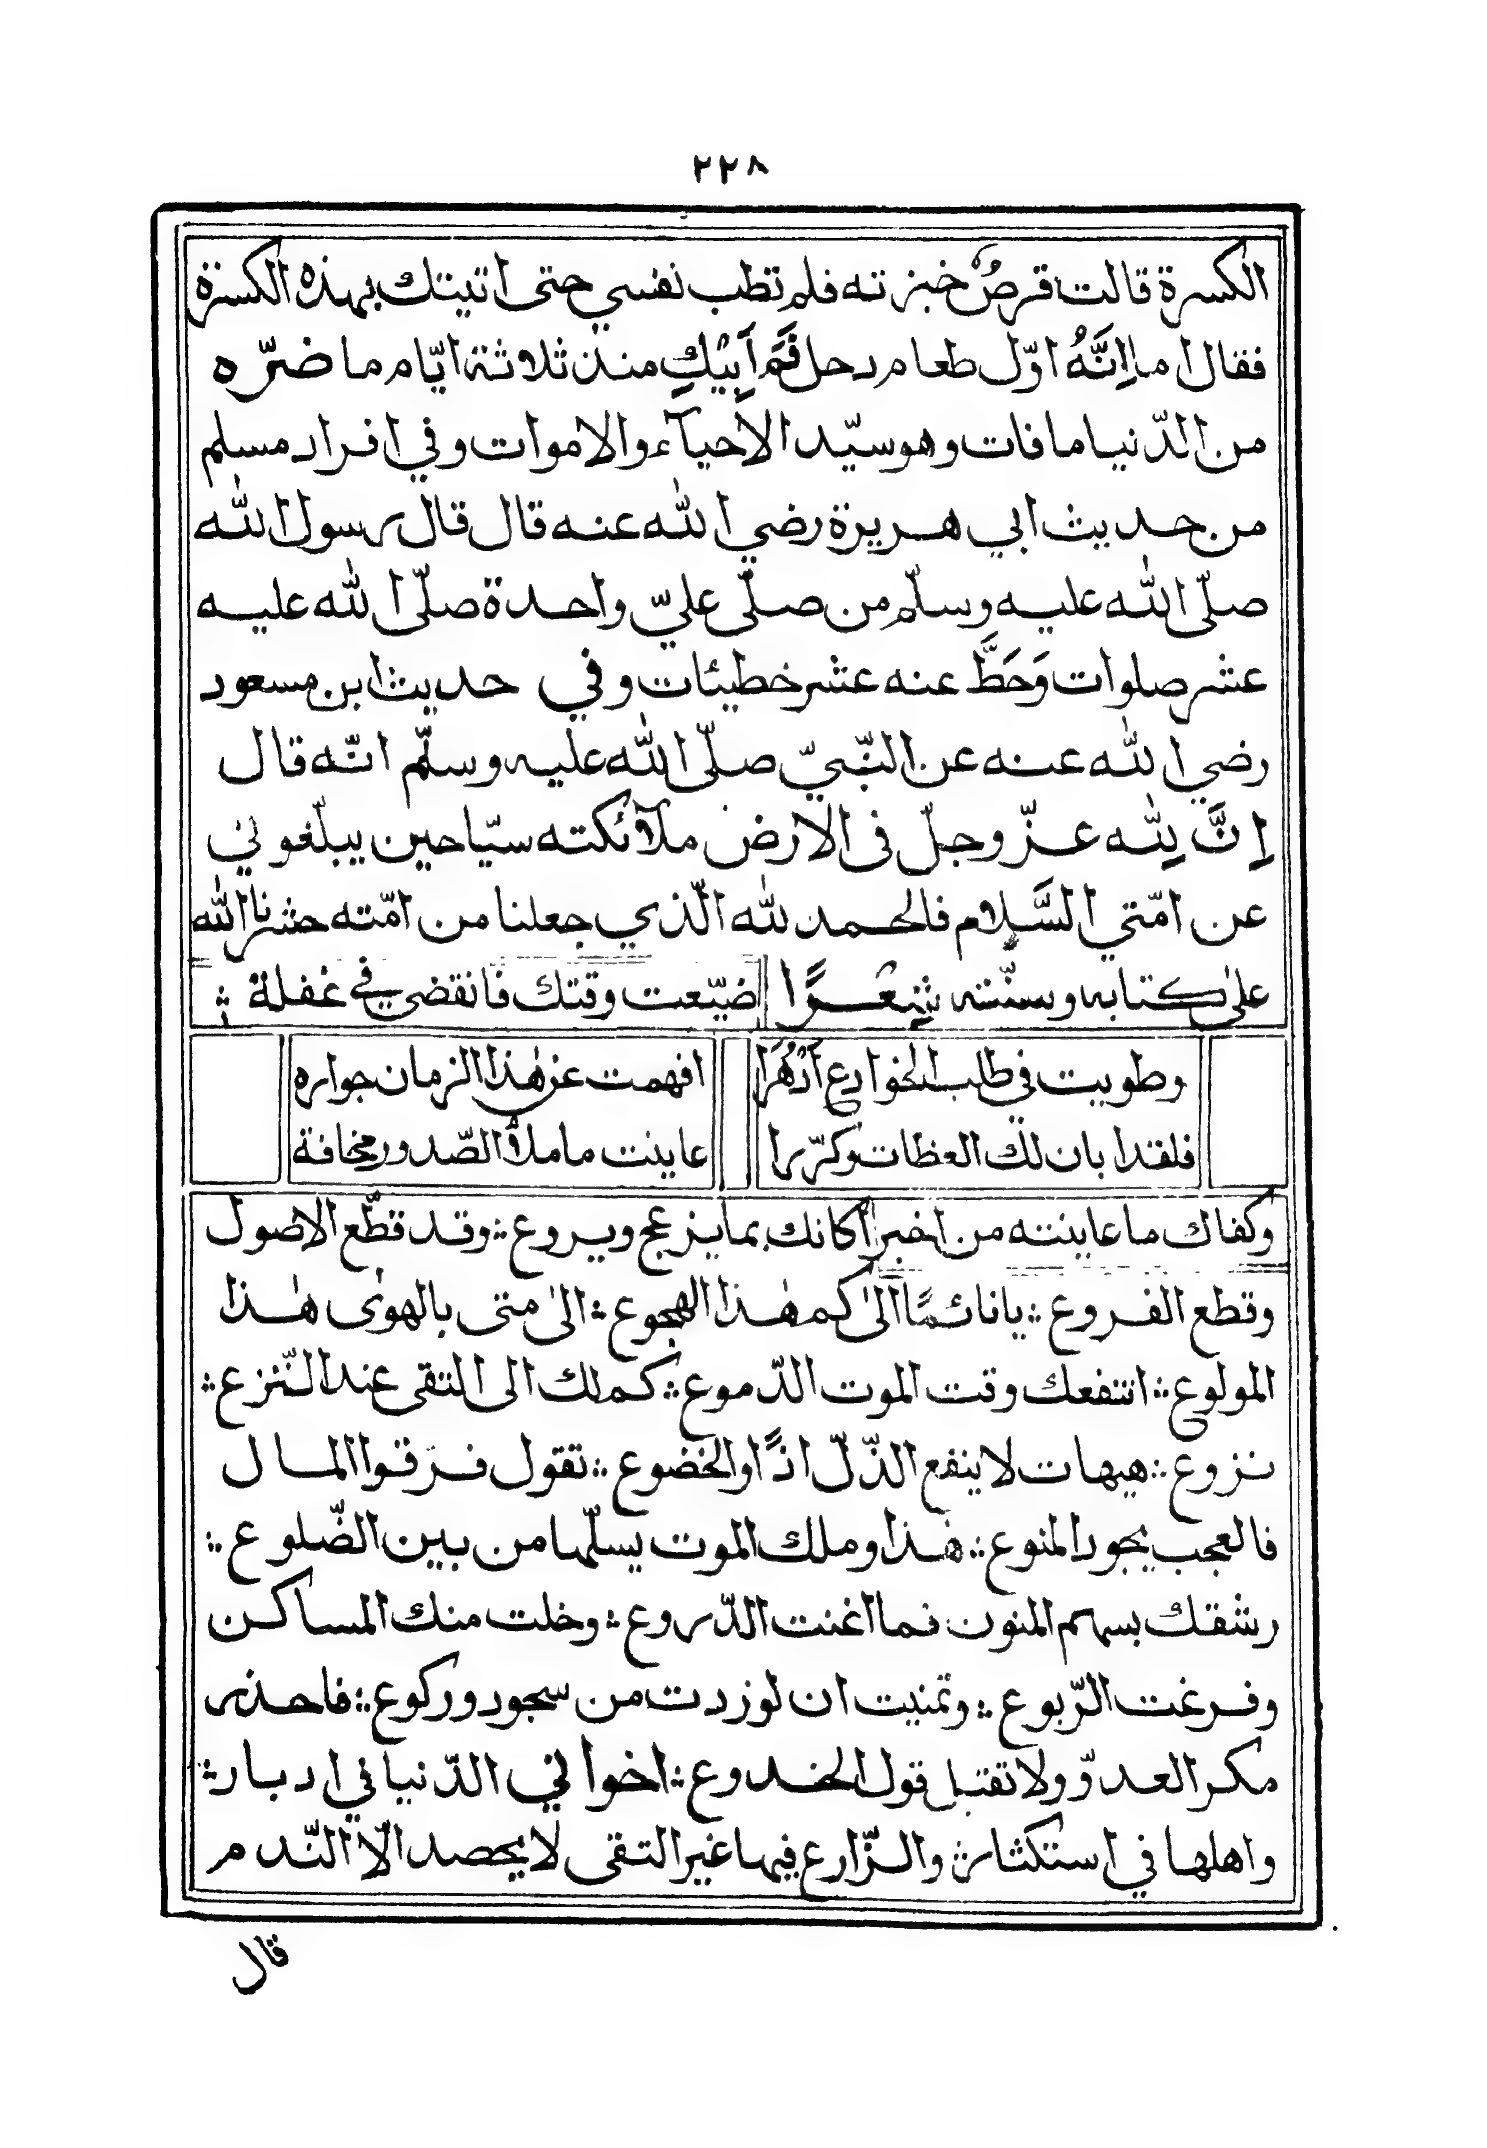 ٢٢٨
الكسرة قالت قرصٌ خبزته فلم تطب نفسي حتى اتيتك بهذه الكسرة
فقال اما اِنَّهُ اوّل طعام دخل فَمَ اَبِيْكِ منذ ثلاثة ايّام ما ضرّه
من الدّنيا ما فات وهو سيّد الاحيآء والاموات وفي افراد مسلم
من حديث ابي هريرة رضي الله عنه قال قال رسول الله
صلّى الله عليه وسلّم من صلّى عليّ واحدة صلّى الله عليه
عشر صلوات وَحَطَّ عنه عشر خطيئات وفي حديث ابن مسعود
رضي الله عنه عن النّبيّ صلّى الله عليه وسلّم انّه قال
اِنَّ لِلّٰه عزّ وجلّ فى الارض ملآئكته سيّاحين يبلّغوني
عن امّتي السَّلام فالحمد لله الّذي جعلنا من امّته حشرنا الله
على كتابه وسنّته شِعْرًا ضيّعت وقتك فانقضى في غفلة ؞
وطويت في طلب الخوادع اَدْهُرَا افهمت عن هٰذا الزمان جوابره
فلقد ابان لك العظات وكرّرا عاينت ما ملأ الصّدور مخافة
وكفاك ما عاينته من اخبرا أكانك بما يزعج ويروع ؞ وقد قطّع الاصول
وقطع الفروع ؞ يا نائمًا الىٰ كم هٰذا الهجوع ؞ الىٰ متى بالهوىٰ هٰذا
المولوع ؞ انتفعك وقت الموت الدّموع ؞ كم لك الى التقى عند النّزع ؞
نزوع ؞ هيهات لا ينفع الذّلّ اذًا والخضوع ؞ تقول فرّقوا المال
فالعجب يجود المنوع ؞ هٰذا وملك الموت يسلّها من بين الضّلوع ؞
رشقك بسهم المنون فما اغنت الدّروع ؞ وخلت منك المساكن
وفرغت الرّبوع ؞ وتمنيت ان لو زدت من سجود وركوع ؞ فاحذر
مكر العدوّ ولا تقتبل قول الخدوع ؞ اخواني الدّنيا في ادبار ؞
واهلها في استكثار ؞ والزّارع فيها غير التقى لا يحصد الّا النّدم
قال